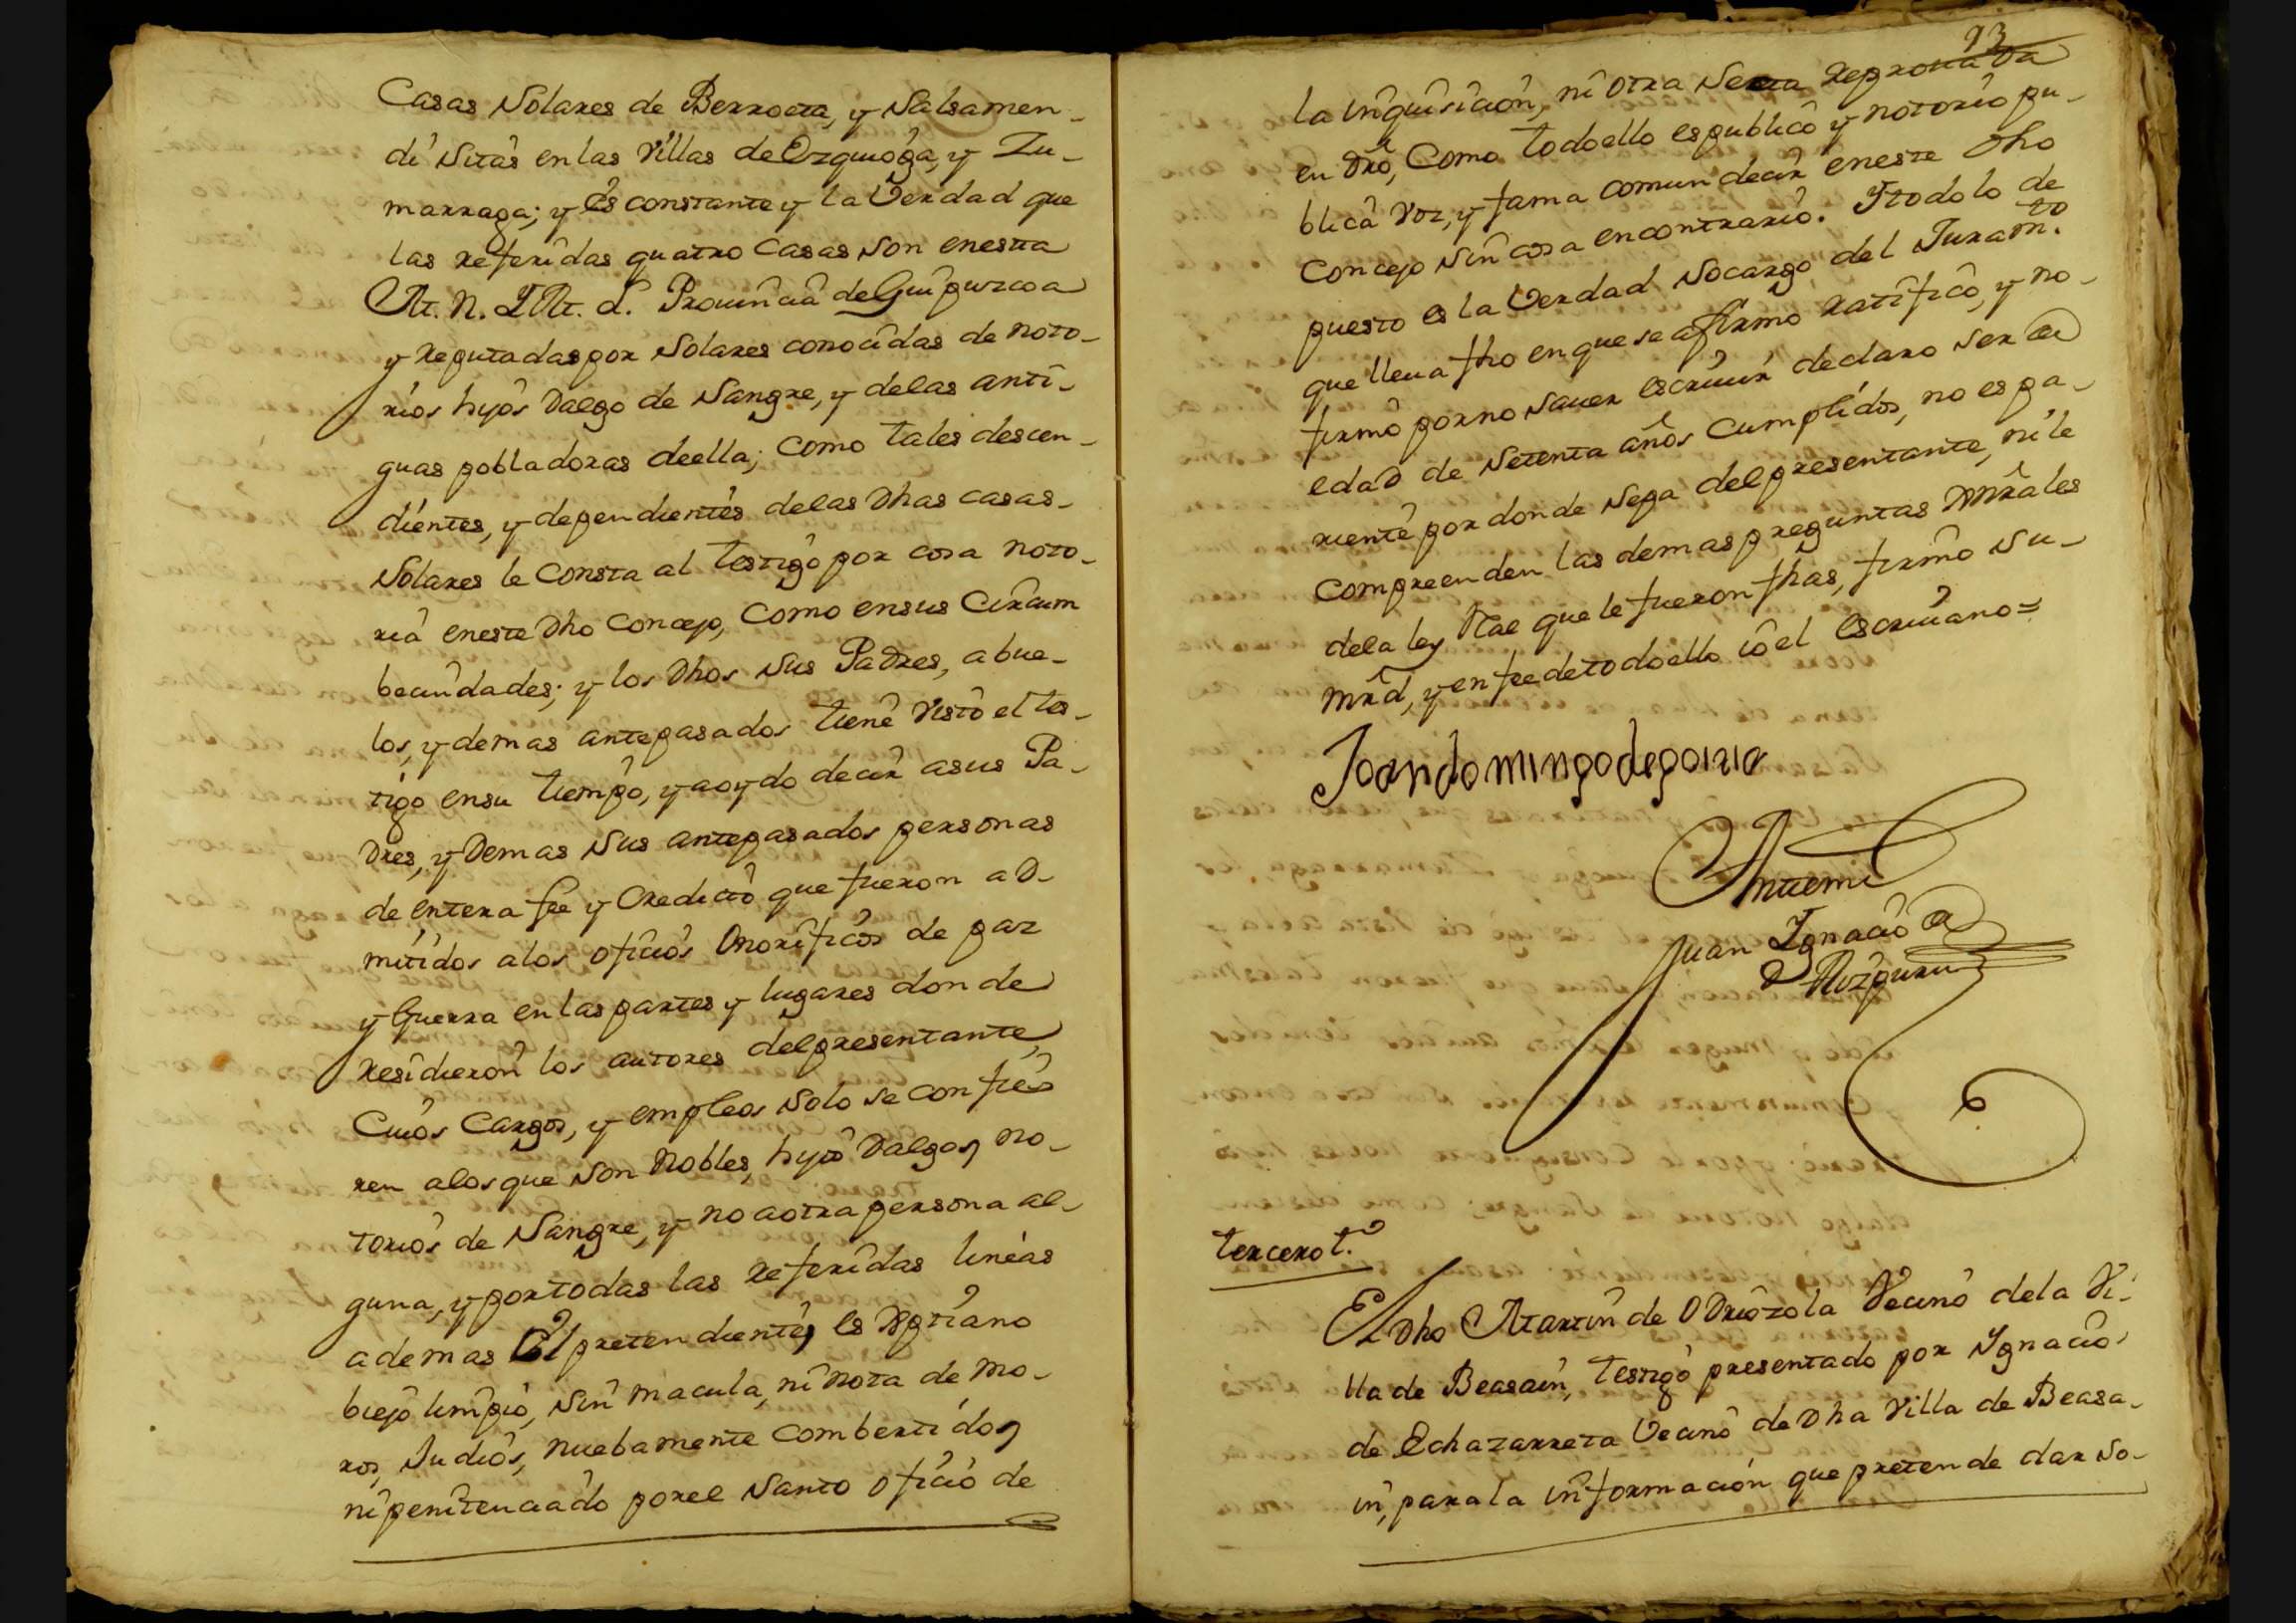 Casas Solares de Berroeta, y Salsamen-
di Sitas en las Villas de Ezquioga, y Zu-
marraga; y és constante y la Verdad que
las referidas quatro Casas son en esta
M. N. Y M. L. Prouincia de Guipuzcoa
y reputadas por Solares conocidas de noto-
rios hijos Dalgo de Sangre, y de las anti-
guas pobladoras deella; como tales descen-
dientes, y dependientes delas Dhas casas-
Solares le consta al testigo por cosa noto-
ria eneste Dho Concejo, Como ensus Circum
becindades; y los Dhos Sus Padres, abue-
los, y demas antepasados tiene visto el tes-
tigo ensu tiempo, y a oydo decir asus Pa-
dres, y Demas Sus antepasados personas
de entera fee y Credicto que fueron aD-
mitidos alos oficios Onorificos de paz
y Guerra en las partes y lugares donde
residieron los autores delpresentante,
Cuios Cargos, y empleos Solo se confie-
ren alos que Son Nobles, hijos Dalgo, no-
torios de Sangre, y no aotra persona al-
guna, y portodas las referidas lineas
ademas El pretendiente, es Xptiano
biejo limpio, Sin macula, ni nota de mo-
ros, Judios, nuebamente combertidos
ni penitenciado porel Santo Oficio de
93
la Inquisicion, ni otra Secta reprouada
en Dro, Como todoello es publico y notorio pu-
blica Voz, y fama comun decir eneste Dho
Concejo Sin cosa encontrario. Y todo lo de
puesto es la Verdad Socargo del Juram.to
que lleua fho en que se afirmo ratifico, y no-
firmó porno Sauer escriuir declaro Ser de
edaD de Setenta años Cumplidos, no es pa-
riente por donde Sepa delpresentante, ni le
Compreenden las demas preguntas Gñrales
dela ley Rl que le fueron fhas, firmó Su-
mrd, y en fee detodoello io el escriuano=
Joan domingo de goiria
Antemi
Juan Ignacio de
Aozpuru
tercero t.o
El Dho Martin de ODriozola Vecino dela Vi-
lla de Beasain, testigo presentado por Ygnacio
de Echazarreta Vecino de Dha Villa de Beasa-
in, parala informacion que pretende dar So-